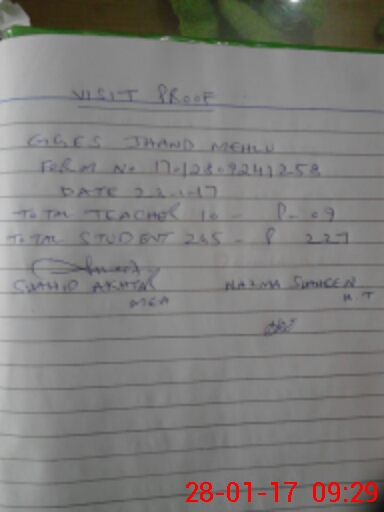 VISIT PROOF
GGES JHAND MEHLU
FORM No 17-128-9241258
DATE 17
TOTAL TEACHER 10 - P- 09
TOTAL STUDENT 235 - P 227
SHAHID AKHTAR NAZMA SHAHEEN
MEA H.T
28-01-17 09:29